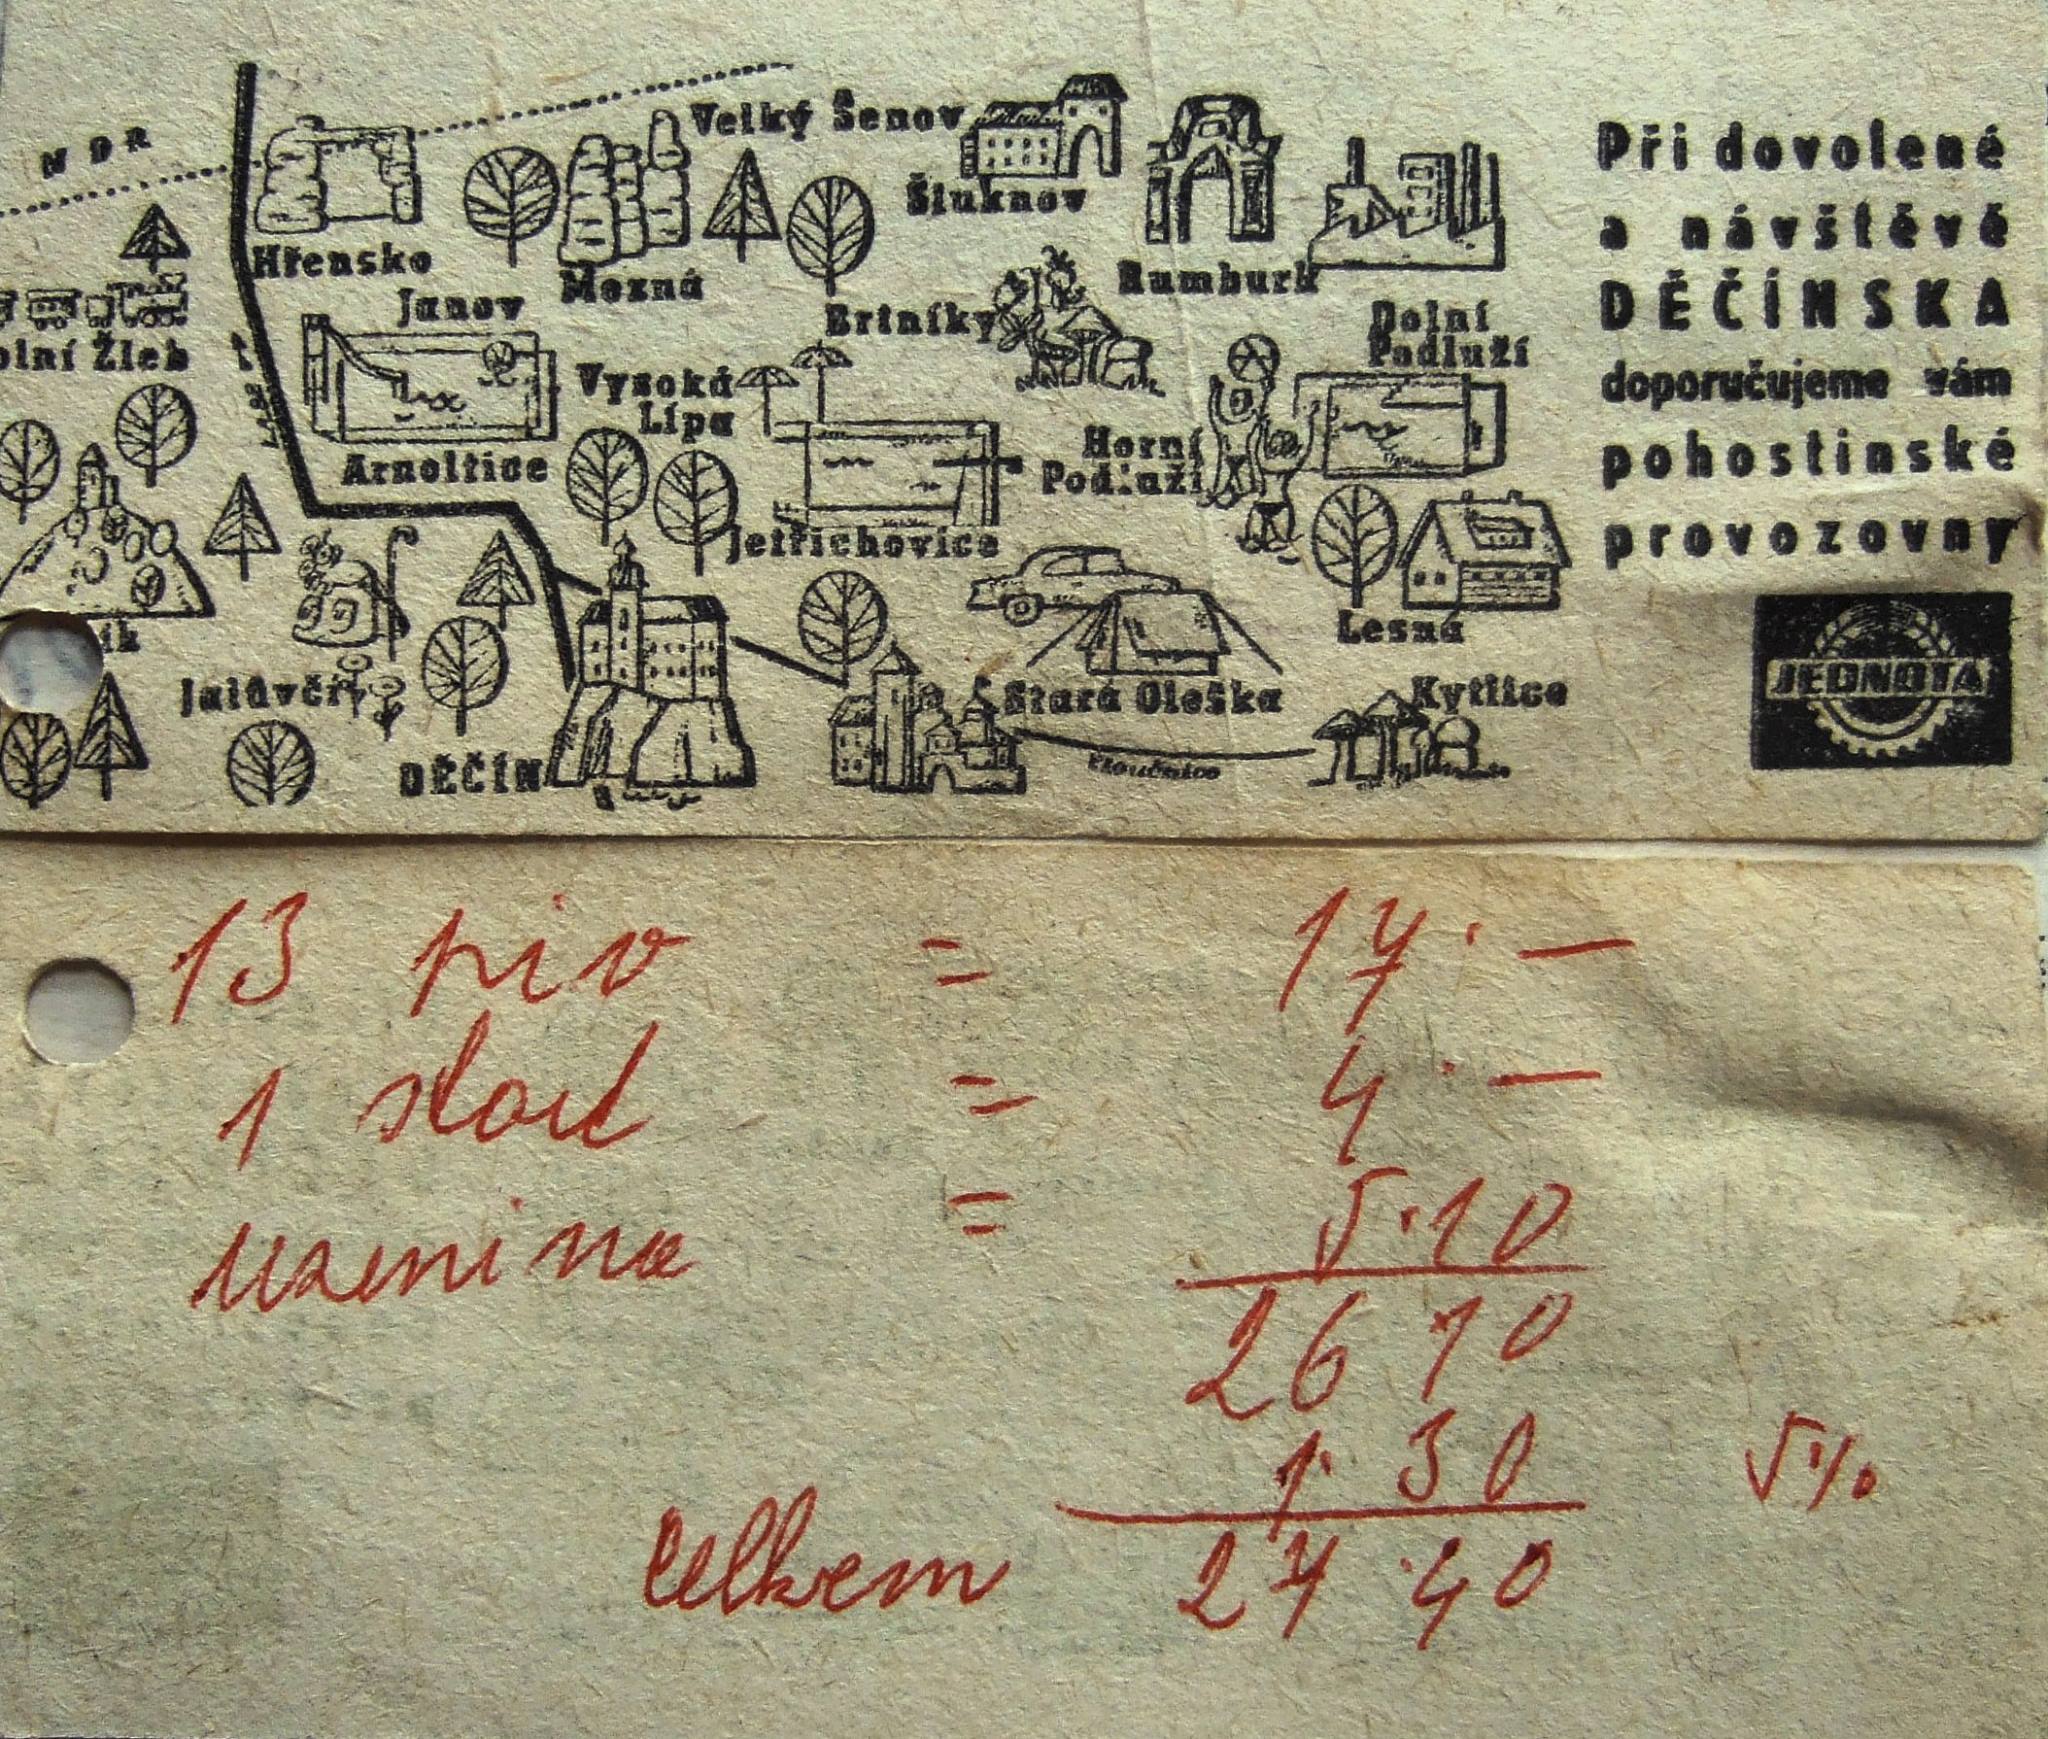 NDR
Velký Šenov
Šluknov
Hřensko
Mezná
Rumburk
Janov
Brtníky
Dolní
Podluží
olní Žleb
Vysoká
Lípa
Labe
Arnoltice
Horní
Podluží
Jetřichovice
Lesná
ík
Jalůvčí
Stará Oleška
Kytlice
DĚČÍN
Ploučnice
Při dovolené
a návštěvě
DĚČÍNSKA
doporučujeme vám
pohostinské
provozovny
JEDNOTA
13 piv = 17.—
1 slad = 4.—
uzenina = 5.10
26 10
1. 30 5%
Celkem 27.40